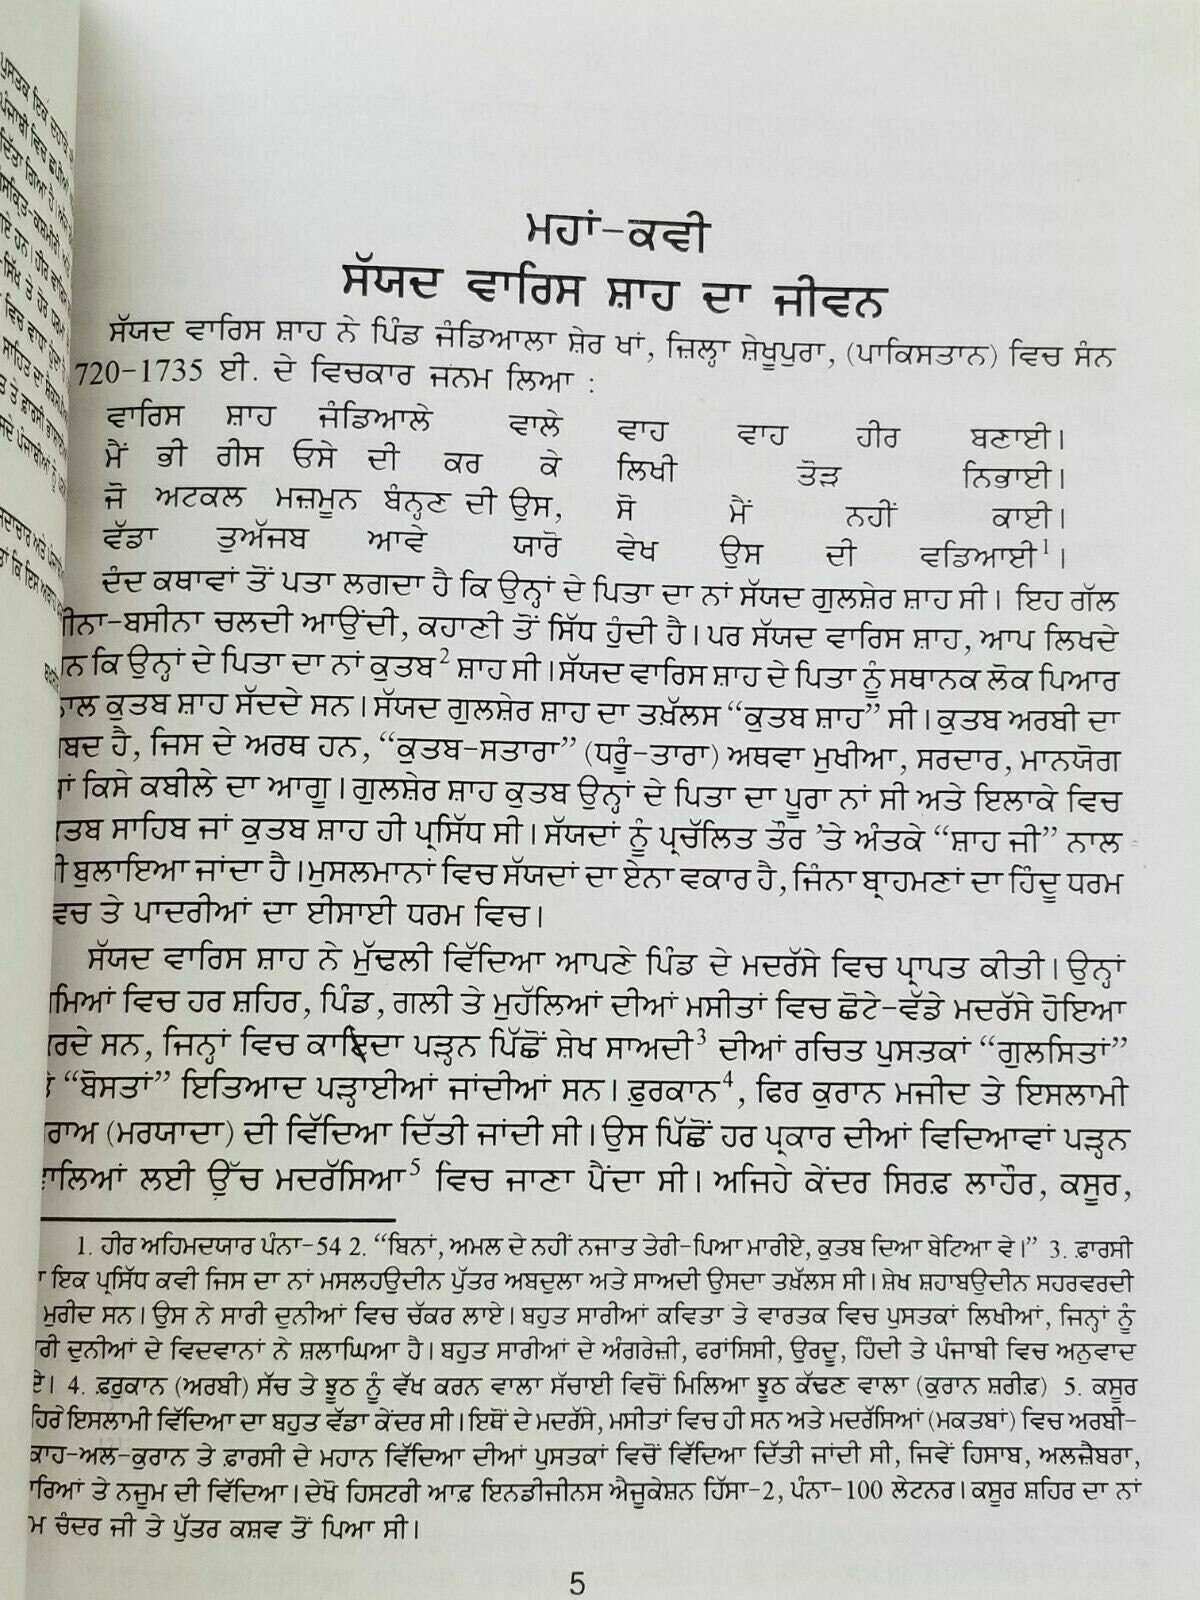 ਮਹਾਂ-ਕਵੀ
ਸੱਯਦ ਵਾਰਿਸ ਸ਼ਾਹ ਦਾ ਜੀਵਨ
ਸੱਯਦ ਵਾਰਿਸ ਸ਼ਾਹ ਨੇ ਪਿੰਡ ਜੰਡਿਆਲਾ ਸ਼ੇਰ ਖਾਂ, ਜ਼ਿਲ੍ਹਾ ਸ਼ੇਖ਼ੂਪੁਰਾ, (ਪਾਕਿਸਤਾਨ) ਵਿਚ ਸੰਨ
720-1735 ਈ. ਦੇ ਵਿਚਕਾਰ ਜਨਮ ਲਿਆ :
ਵਾਰਿਸ ਸ਼ਾਹ ਜੰਡਿਆਲੇ ਵਾਲੇ ਵਾਹ ਵਾਹ ਹੀਰ ਬਣਾਈ।
ਮੈਂ ਭੀ ਰੀਸ ਓਸੇ ਦੀ ਕਰ ਕੇ ਲਿਖੀ ਤੋੜ ਨਿਭਾਈ।
ਜੋ ਅਟਕਲ ਮਜ਼ਮੂਨ ਬੰਨ੍ਹਣ ਦੀ ਉਸ, ਸੋ ਮੈਂ ਨਹੀਂ ਕਾਈ।
ਵੱਡਾ ਤੁਅੱਜਬ ਆਵੇ ਯਾਰੋ ਵੇਖ ਉਸ ਦੀ ਵਡਿਆਈ¹।
ਦੰਦ ਕਥਾਵਾਂ ਤੋਂ ਪਤਾ ਲਗਦਾ ਹੈ ਕਿ ਉਨ੍ਹਾਂ ਦੇ ਪਿਤਾ ਦਾ ਨਾਂ ਸੱਯਦ ਗੁਲਸ਼ੇਰ ਸ਼ਾਹ ਸੀ। ਇਹ ਗੱਲ
ੀਨਾ-ਬਸੀਨਾ ਚਲਦੀ ਆਉਂਦੀ, ਕਹਾਣੀ ਤੋਂ ਸਿੱਧ ਹੁੰਦੀ ਹੈ। ਪਰ ਸੱਯਦ ਵਾਰਿਸ ਸ਼ਾਹ, ਆਪ ਲਿਖਦੇ
ਨ ਕਿ ਉਨ੍ਹਾਂ ਦੇ ਪਿਤਾ ਦਾ ਨਾਂ ਕੁਤਬ² ਸ਼ਾਹ ਸੀ। ਸੱਯਦ ਵਾਰਿਸ ਸ਼ਾਹ ਦੇ ਪਿਤਾ ਨੂੰ ਸਥਾਨਕ ਲੋਕ ਪਿਆਰ
ਾਲ ਕੁਤਬ ਸ਼ਾਹ ਸੱਦਦੇ ਸਨ। ਸੱਯਦ ਗੁਲਸ਼ੇਰ ਸ਼ਾਹ ਦਾ ਤਖ਼ੱਲਸ “ਕੁਤਬ ਸ਼ਾਹ” ਸੀ। ਕੁਤਬ ਅਰਬੀ ਦਾ
ਬਦ ਹੈ, ਜਿਸ ਦੇ ਅਰਥ ਹਨ, “ਕੁਤਬ-ਸਤਾਰਾ” (ਧਰੂੰ-ਤਾਰਾ) ਅਥਵਾ ਮੁਖੀਆ, ਸਰਦਾਰ, ਮਾਨਯੋਗ
ਾਂ ਕਿਸੇ ਕਬੀਲੇ ਦਾ ਆਗੂ। ਗੁਲਸ਼ੇਰ ਸ਼ਾਹ ਕੁਤਬ ਉਨ੍ਹਾਂ ਦੇ ਪਿਤਾ ਦਾ ਪੂਰਾ ਨਾਂ ਸੀ ਅਤੇ ਇਲਾਕੇ ਵਿਚ
ਤਬ ਸਾਹਿਬ ਜਾਂ ਕੁਤਬ ਸ਼ਾਹ ਹੀ ਪ੍ਰਸਿੱਧ ਸੀ। ਸੱਯਦਾਂ ਨੂੰ ਪ੍ਰਚੱਲਿਤ ਤੌਰ 'ਤੇ ਅੰਤਕੇ “ਸ਼ਾਹ ਜੀ” ਨਾਲ
ੀ ਬੁਲਾਇਆ ਜਾਂਦਾ ਹੈ। ਮੁਸਲਮਾਨਾਂ ਵਿਚ ਸੱਯਦਾਂ ਦਾ ਏਨਾ ਵਕਾਰ ਹੈ, ਜਿੰਨਾ ਬ੍ਰਾਹਮਣਾਂ ਦਾ ਹਿੰਦੂ ਧਰਮ
ਵਚ ਤੇ ਪਾਦਰੀਆਂ ਦਾ ਈਸਾਈ ਧਰਮ ਵਿਚ।
ਸੱਯਦ ਵਾਰਿਸ ਸ਼ਾਹ ਨੇ ਮੁੱਢਲੀ ਵਿੱਦਿਆ ਆਪਣੇ ਪਿੰਡ ਦੇ ਮਦਰੱਸੇ ਵਿਚ ਪ੍ਰਾਪਤ ਕੀਤੀ। ਉਨ੍ਹਾਂ
ਮਿਆਂ ਵਿਚ ਹਰ ਸ਼ਹਿਰ, ਪਿੰਡ, ਗਲੀ ਤੇ ਮੁਹੱਲਿਆਂ ਦੀਆਂ ਮਸੀਤਾਂ ਵਿਚ ਛੋਟੇ-ਵੱਡੇ ਮਦਰੱਸੇ ਹੋਇਆ
ਰਦੇ ਸਨ, ਜਿਨ੍ਹਾਂ ਵਿਚ ਕਾਇਦਾ ਪੜ੍ਹਨ ਪਿੱਛੋਂ ਸ਼ੇਖ ਸਾਅਦੀ³ ਦੀਆਂ ਰਚਿਤ ਪੁਸਤਕਾਂ “ਗੁਲਸਿਤਾਂ”
ਤੇ “ਬੋਸਤਾਂ” ਇਤਿਆਦ ਪੜ੍ਹਾਈਆਂ ਜਾਂਦੀਆਂ ਸਨ। ਫ਼ੁਰਕਾਨ⁴, ਫਿਰ ਕੁਰਾਨ ਮਜੀਦ ਤੇ ਇਸਲਾਮੀ
ਰਾਅ (ਮਰਯਾਦਾ) ਦੀ ਵਿੱਦਿਆ ਦਿੱਤੀ ਜਾਂਦੀ ਸੀ। ਉਸ ਪਿੱਛੋਂ ਹਰ ਪ੍ਰਕਾਰ ਦੀਆਂ ਵਿਦਿਆਵਾਂ ਪੜ੍ਹਨ
ਾਲਿਆਂ ਲਈ ਉੱਚ ਮਦਰੱਸਿਆ⁵ ਵਿਚ ਜਾਣਾ ਪੈਂਦਾ ਸੀ। ਅਜਿਹੇ ਕੇਂਦਰ ਸਿਰਫ਼ ਲਾਹੌਰ, ਕਸੂਰ,
1. ਹੀਰ ਅਹਿਮਦਯਾਰ ਪੰਨਾ-54 2. “ਬਿਨਾਂ, ਅਮਲ ਦੇ ਨਹੀਂ ਨਜਾਤ ਤੇਰੀ-ਪਿਆ ਮਾਰੀਏ, ਕੁਤਬ ਦਿਆ ਬੇਟਿਆ ਵੇ।” 3. ਫ਼ਾਰਸੀ
ਾ ਇਕ ਪ੍ਰਸਿੱਧ ਕਵੀ ਜਿਸ ਦਾ ਨਾਂ ਮਸਲਹਉਦੀਨ ਪੁੱਤਰ ਅਬਦੁਲਾ ਅਤੇ ਸਾਅਦੀ ਉਸਦਾ ਤਖ਼ੱਲਸ ਸੀ। ਸ਼ੇਖ ਸ਼ਹਾਬਉਦੀਨ ਸਹਰਵਰਦੀ
ਮੁਰੀਦ ਸਨ। ਉਸ ਨੇ ਸਾਰੀ ਦੁਨੀਆਂ ਵਿਚ ਚੱਕਰ ਲਾਏ। ਬਹੁਤ ਸਾਰੀਆਂ ਕਵਿਤਾ ਤੇ ਵਾਰਤਕ ਵਿਚ ਪੁਸਤਕਾਂ ਲਿਖੀਆਂ, ਜਿਨ੍ਹਾਂ ਨੂੰ
ਰੀ ਦੁਨੀਆਂ ਦੇ ਵਿਦਵਾਨਾਂ ਨੇ ਸ਼ਲਾਘਿਆ ਹੈ। ਬਹੁਤ ਸਾਰੀਆਂ ਦੇ ਅੰਗਰੇਜ਼ੀ, ਫਰਾਂਸਿਸੀ, ਉਰਦੂ, ਹਿੰਦੀ ਤੇ ਪੰਜਾਬੀ ਵਿਚ ਅਨੁਵਾਦ
ਏ। 4. ਫ਼ਰੁਕਾਨ (ਅਰਬੀ) ਸੱਚ ਤੇ ਝੂਠ ਨੂੰ ਵੱਖ ਕਰਨ ਵਾਲਾ ਸੱਚਾਈ ਵਿਚੋਂ ਮਿਲਿਆ ਝੂਠ ਕੱਢਣ ਵਾਲਾ (ਕੁਰਾਨ ਸ਼ਰੀਫ਼) 5. ਕਸੂਰ
ਹਿਰੇ ਇਸਲਾਮੀ ਵਿੱਦਿਆ ਦਾ ਬਹੁਤ ਵੱਡਾ ਕੇਂਦਰ ਸੀ। ਇਥੋਂ ਦੇ ਮਦਰੱਸੇ, ਮਸੀਤਾਂ ਵਿਚ ਹੀ ਸਨ ਅਤੇ ਮਦਰੱਸਿਆਂ (ਮਕਤਬਾਂ) ਵਿਚ ਅਰਬੀ-
ਕਾਹ-ਅਲ-ਕੁਰਾਨ ਤੇ ਫ਼ਾਰਸੀ ਦੇ ਮਹਾਨ ਵਿੱਦਿਆ ਦੀਆਂ ਪੁਸਤਕਾਂ ਵਿਚੋਂ ਵਿੱਦਿਆ ਦਿੱਤੀ ਜਾਂਦੀ ਸੀ, ਜਿਵੇਂ ਹਿਸਾਬ, ਅਲਜ਼ੈਬਰਾ,
ਾਰਿਆਂ ਤੇ ਨਜੂਮ ਦੀ ਵਿੱਦਿਆ। ਦੇਖੋ ਹਿਸਟਰੀ ਆਫ਼ ਇਨਡੀਜੀਨਸ ਐਜੂਕੇਸ਼ਨ ਹਿੱਸਾ-2, ਪੰਨਾ-100 ਲੇਟਨਰ। ਕਸੂਰ ਸ਼ਹਿਰ ਦਾ ਨਾਂ
ਮ ਚੰਦਰ ਜੀ ਤੇ ਪੁੱਤਰ ਕਸ਼ਵ ਤੋਂ ਪਿਆ ਸੀ।
5